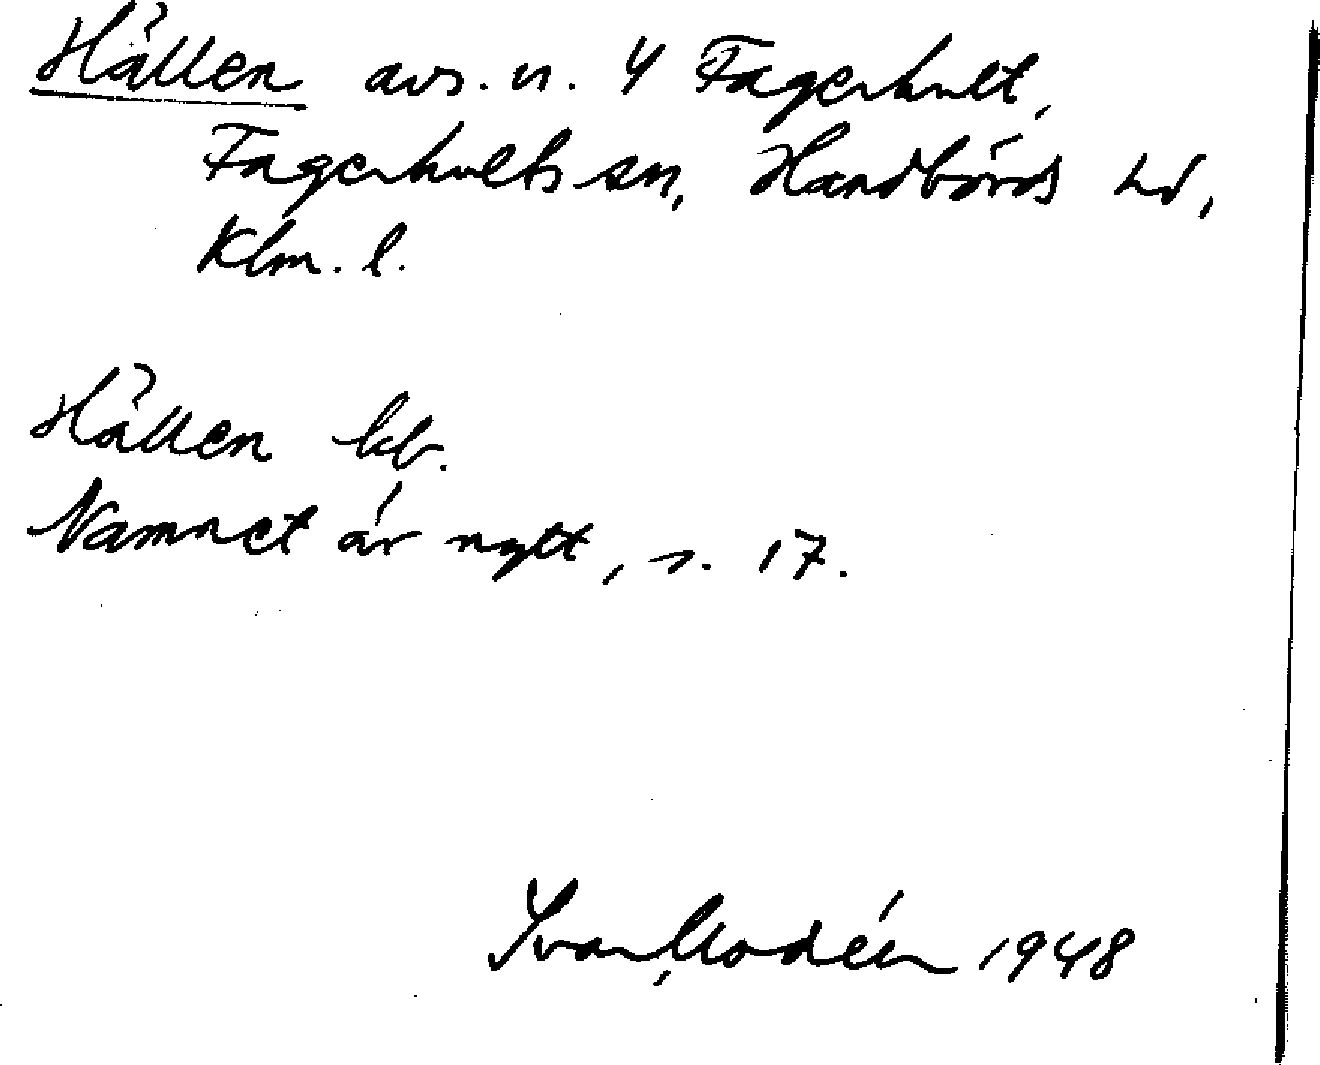 Hällen avs. u. 4 Fagerhult,
Fagerhults sn, Handbörds hd,
Klm. l.
Hällen kb.
Namnet är nytt, s. 17.
Ivar Modéer 1948